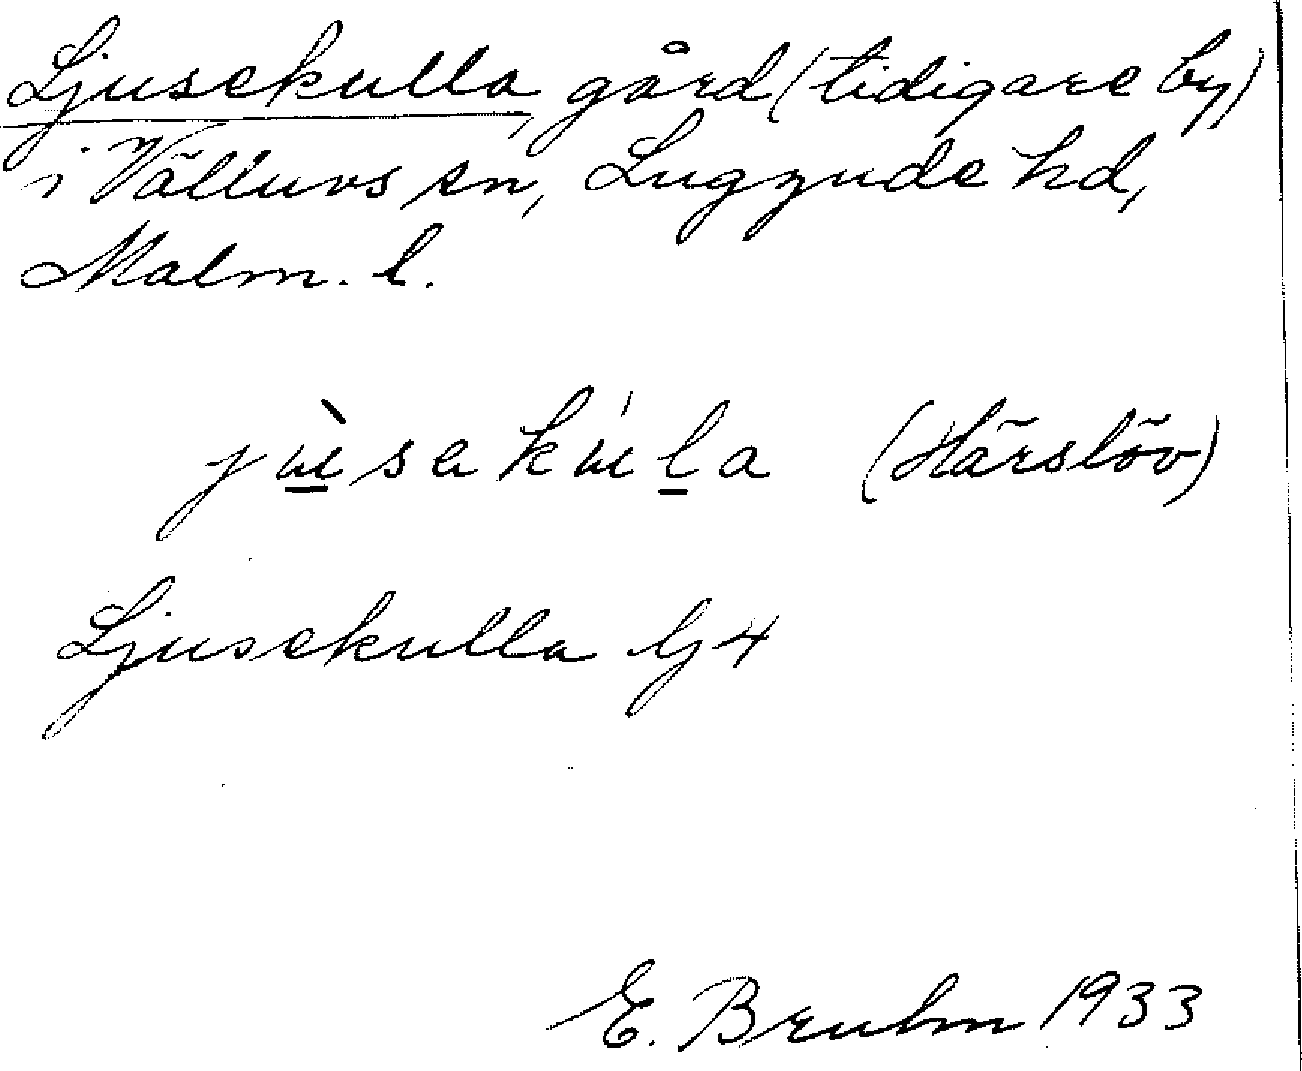 Ljusekulla, gård (tidigare by)
i Välluvs sn, Luggude hd,
Malm. l.
(Härslöv)
Ljusekulla
E. Bruhn 1933